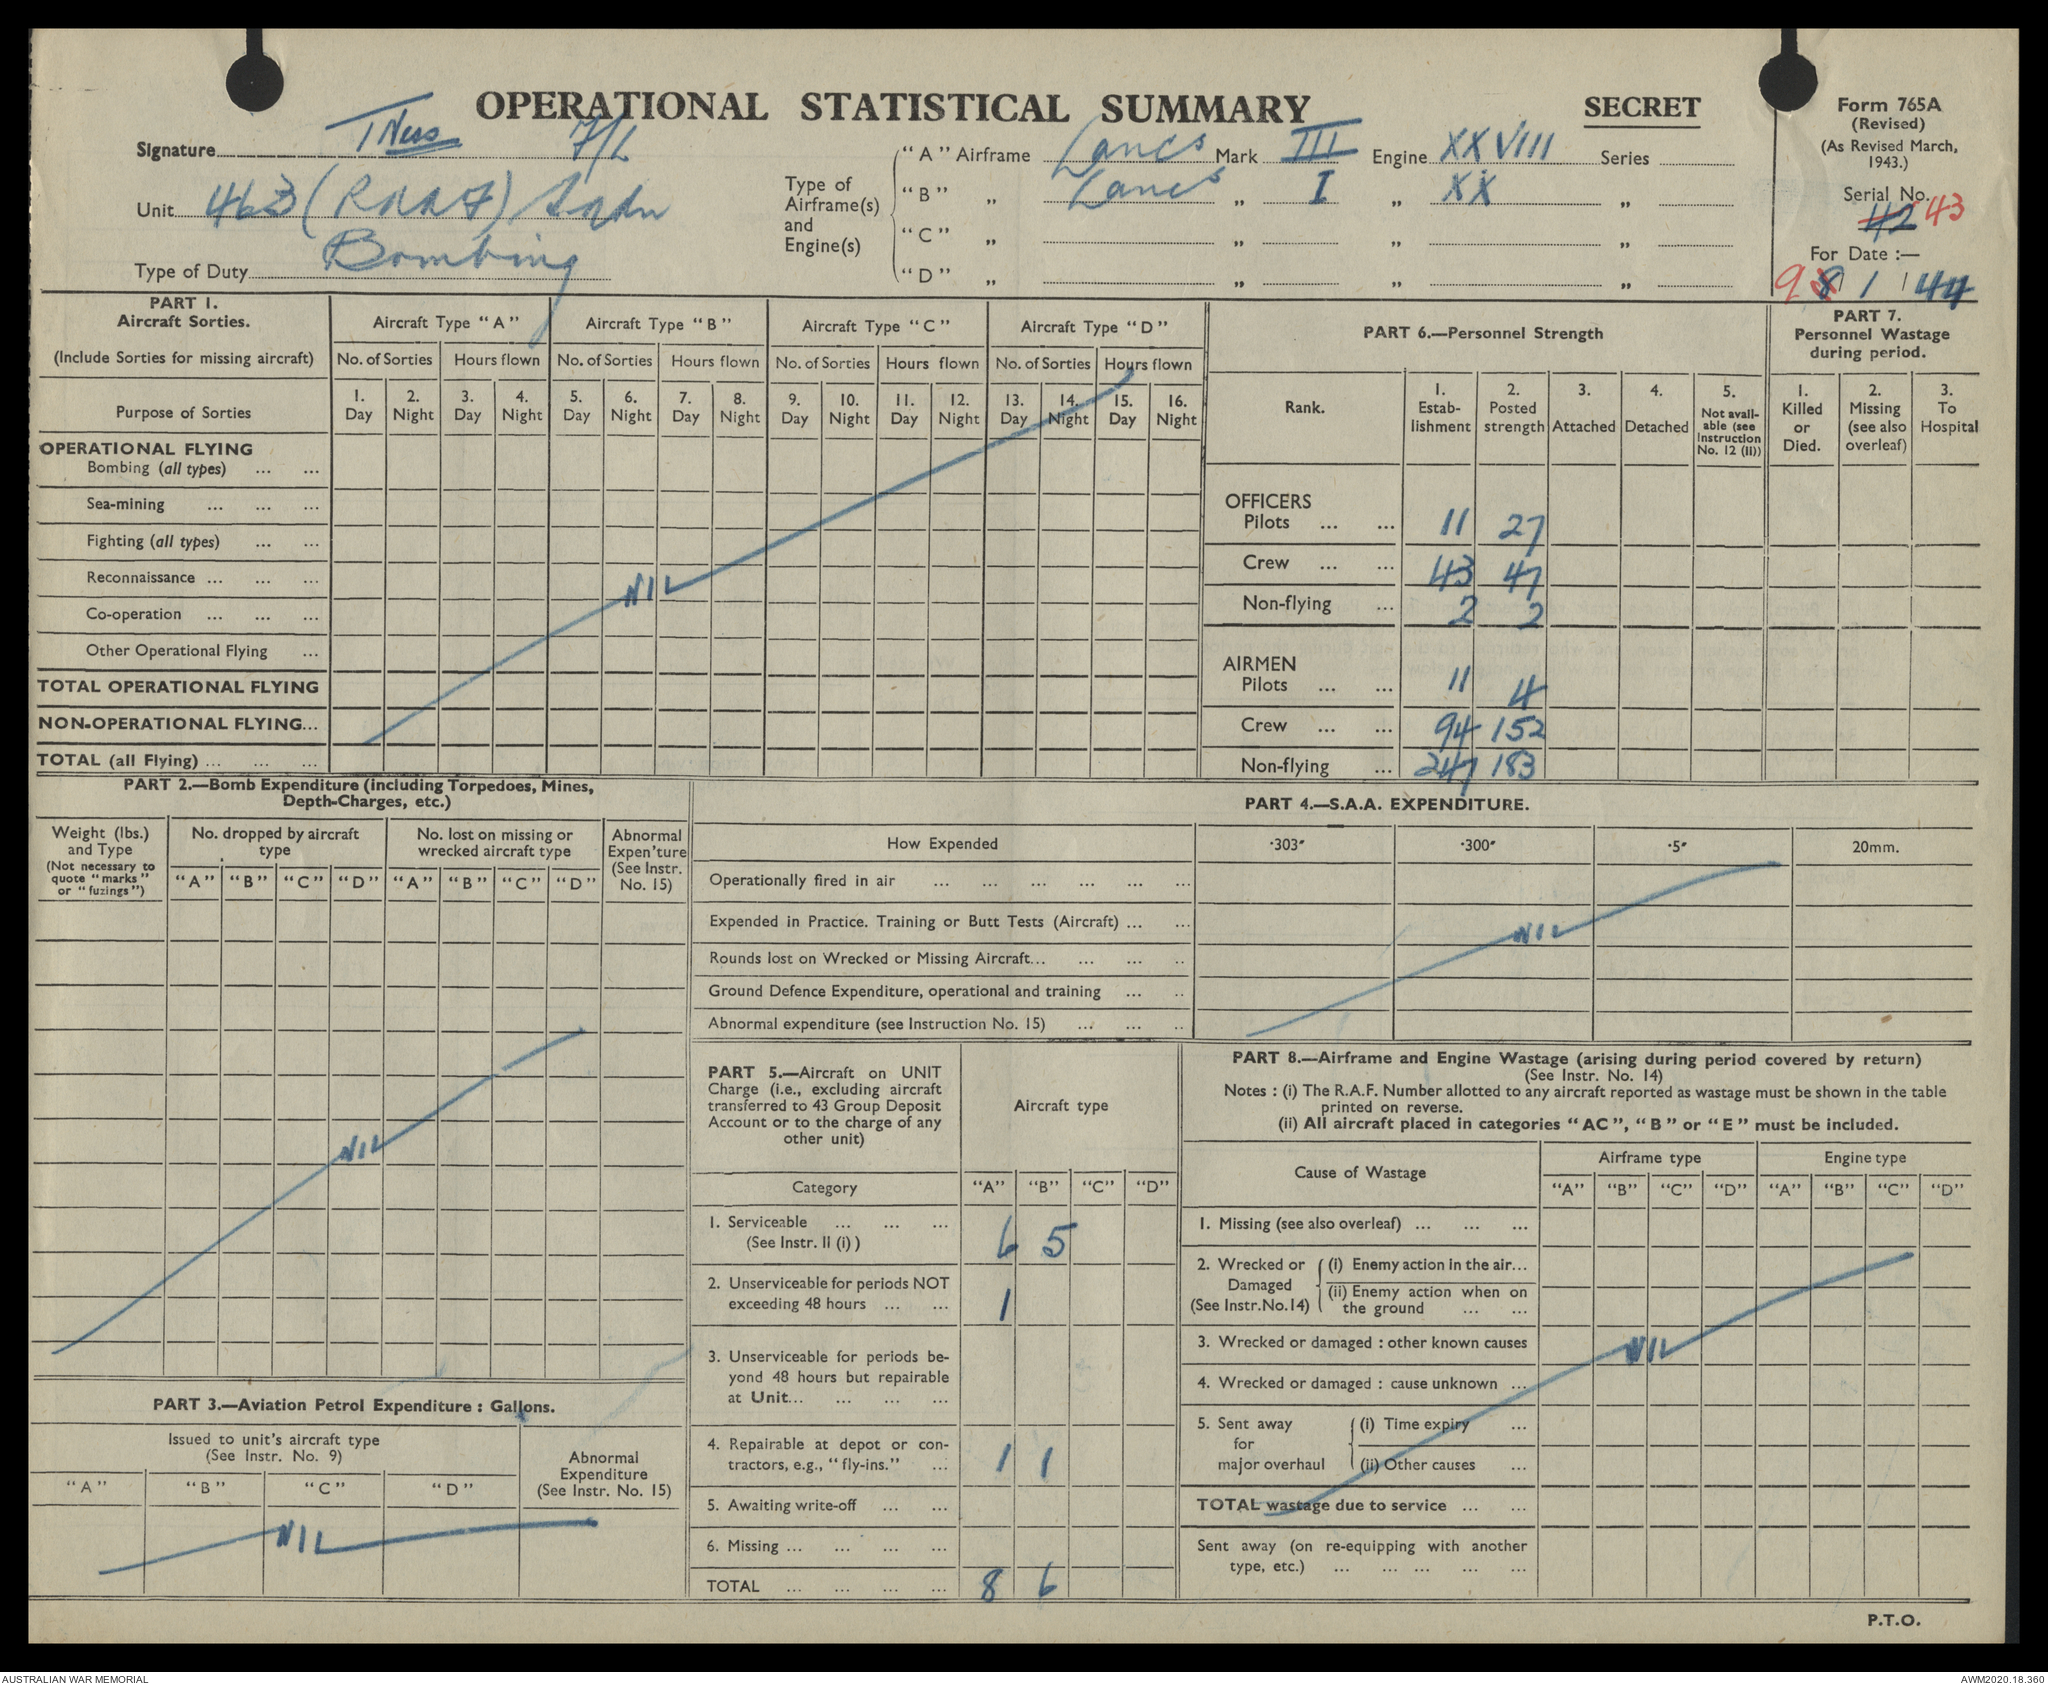 OPERATIONAL STATISTICAL SUMMARY
SECRET
Form 765A
(Revised)
(As Revised March,
1943.)
Serial No.
42 43
For Date :—
9 8 / 1 / 44
Signature TNess F/L
Unit 463 (RAAF) Sqdn
Type of Duty Bombing
Type of
Airframe(s)
and
Engine(s)
"A" Airframe Lancs Mark III Engine XXVIII Series
"B" „ Lancs „ I „ XX „
"C" „ „ „ „
"D" „ „ „ „
PART 1.
Aircraft Sorties.
(Include Sorties for missing aircraft)
Aircraft Type "A" Aircraft Type "B" Aircraft Type "C" Aircraft Type "D"
No. of Sorties Hours flown No. of Sorties Hours flown No. of Sorties Hours flown No. of Sorties Hours flown
Purpose of Sorties
1. 2. 3. 4. 5. 6. 7. 8. 9. 10. 11. 12. 13. 14. 15. 16.
Day Night Day Night Day Night Day Night Day Night Day Night Day Night Day Night
OPERATIONAL FLYING
Bombing (all types) ... ...
Sea-mining ... ... ...
Fighting (all types) ... ...
Reconnaissance ... ... ...
NIL
Co-operation ... ... ...
Other Operational Flying ...
TOTAL OPERATIONAL FLYING
NON-OPERATIONAL FLYING...
TOTAL (all Flying) ... ... ...
PART 6.—Personnel Strength
Rank.
1.
Estab-
lishment
2.
Posted
strength
3.
Attached
4.
Detached
5.
Not avail-
able (see
Instruction
No. 12 (II))
OFFICERS
Pilots ... ... 11 27
Crew ... ... 43 47
Non-flying ... 2 2
AIRMEN
Pilots ... ... 11 4
Crew ... ... 94 152
Non-flying ... 247 183
PART 7.
Personnel Wastage
during period.
1.
Killed
or
Died.
2.
Missing
(see also
overleaf)
3.
To
Hospital
PART 2.—Bomb Expenditure (including Torpedoes, Mines,
Depth-Charges, etc.)
Weight (lbs.)
and Type
(Not necessary to
quote "marks"
or "fuzings")
No. dropped by aircraft
type
No. lost on missing or
wrecked aircraft type
Abnormal
Expen'ture
(See Instr.
No. 15)
"A" "B" "C" "D" "A" "B" "C" "D"
NIL
PART 3.—Aviation Petrol Expenditure : Gallons.
Issued to unit's aircraft type
(See Instr. No. 9)
Abnormal
Expenditure
(See Instr. No. 15)
"A" "B" "C" "D"
NIL
PART 4.—S.A.A. EXPENDITURE.
How Expended ·303" ·300" ·5" 20mm.
Operationally fired in air ... ... ... ... ... ...
Expended in Practice. Training or Butt Tests (Aircraft) ... ...
NIL
Rounds lost on Wrecked or Missing Aircraft... ... ... ..
Ground Defence Expenditure, operational and training ... ..
Abnormal expenditure (see Instruction No. 15) ... ... ..
PART 5.—Aircraft on UNIT
Charge (i.e., excluding aircraft
transferred to 43 Group Deposit
Account or to the charge of any
other unit)
Aircraft type
Category "A" "B" "C" "D"
1. Serviceable ... ... ...
(See Instr. II (i) ) 6 5
2. Unserviceable for periods NOT
exceeding 48 hours ... ... 1
3. Unserviceable for periods be-
yond 48 hours but repairable
at Unit... ... ... ...
4. Repairable at depot or con-
tractors, e.g., "fly-ins." ... 1 1
5. Awaiting write-off ... ...
6. Missing ... ... ... ...
TOTAL ... ... ... ... 8 6
PART 8.—Airframe and Engine Wastage (arising during period covered by return)
(See Instr. No. 14)
Notes : (i) The R.A.F. Number allotted to any aircraft reported as wastage must be shown in the table
printed on reverse.
(ii) All aircraft placed in categories "AC", "B" or "E" must be included.
Cause of Wastage
Airframe type Engine type
"A" "B" "C" "D" "A" "B" "C" "D"
1. Missing (see also overleaf) ... ... ...
2. Wrecked or
Damaged
(See Instr.No.14)
(i) Enemy action in the air...
(ii) Enemy action when on
the ground ... ...
3. Wrecked or damaged : other known causes
NIL
4. Wrecked or damaged : cause unknown ...
5. Sent away
for
major overhaul
(i) Time expiry ...
(ii) Other causes ...
TOTAL wastage due to service ... ...
Sent away (on re-equipping with another
type, etc.) ... ... ... ... ...
P.T.O.
AUSTRALIAN WAR MEMORIAL
AWM2020.18.360